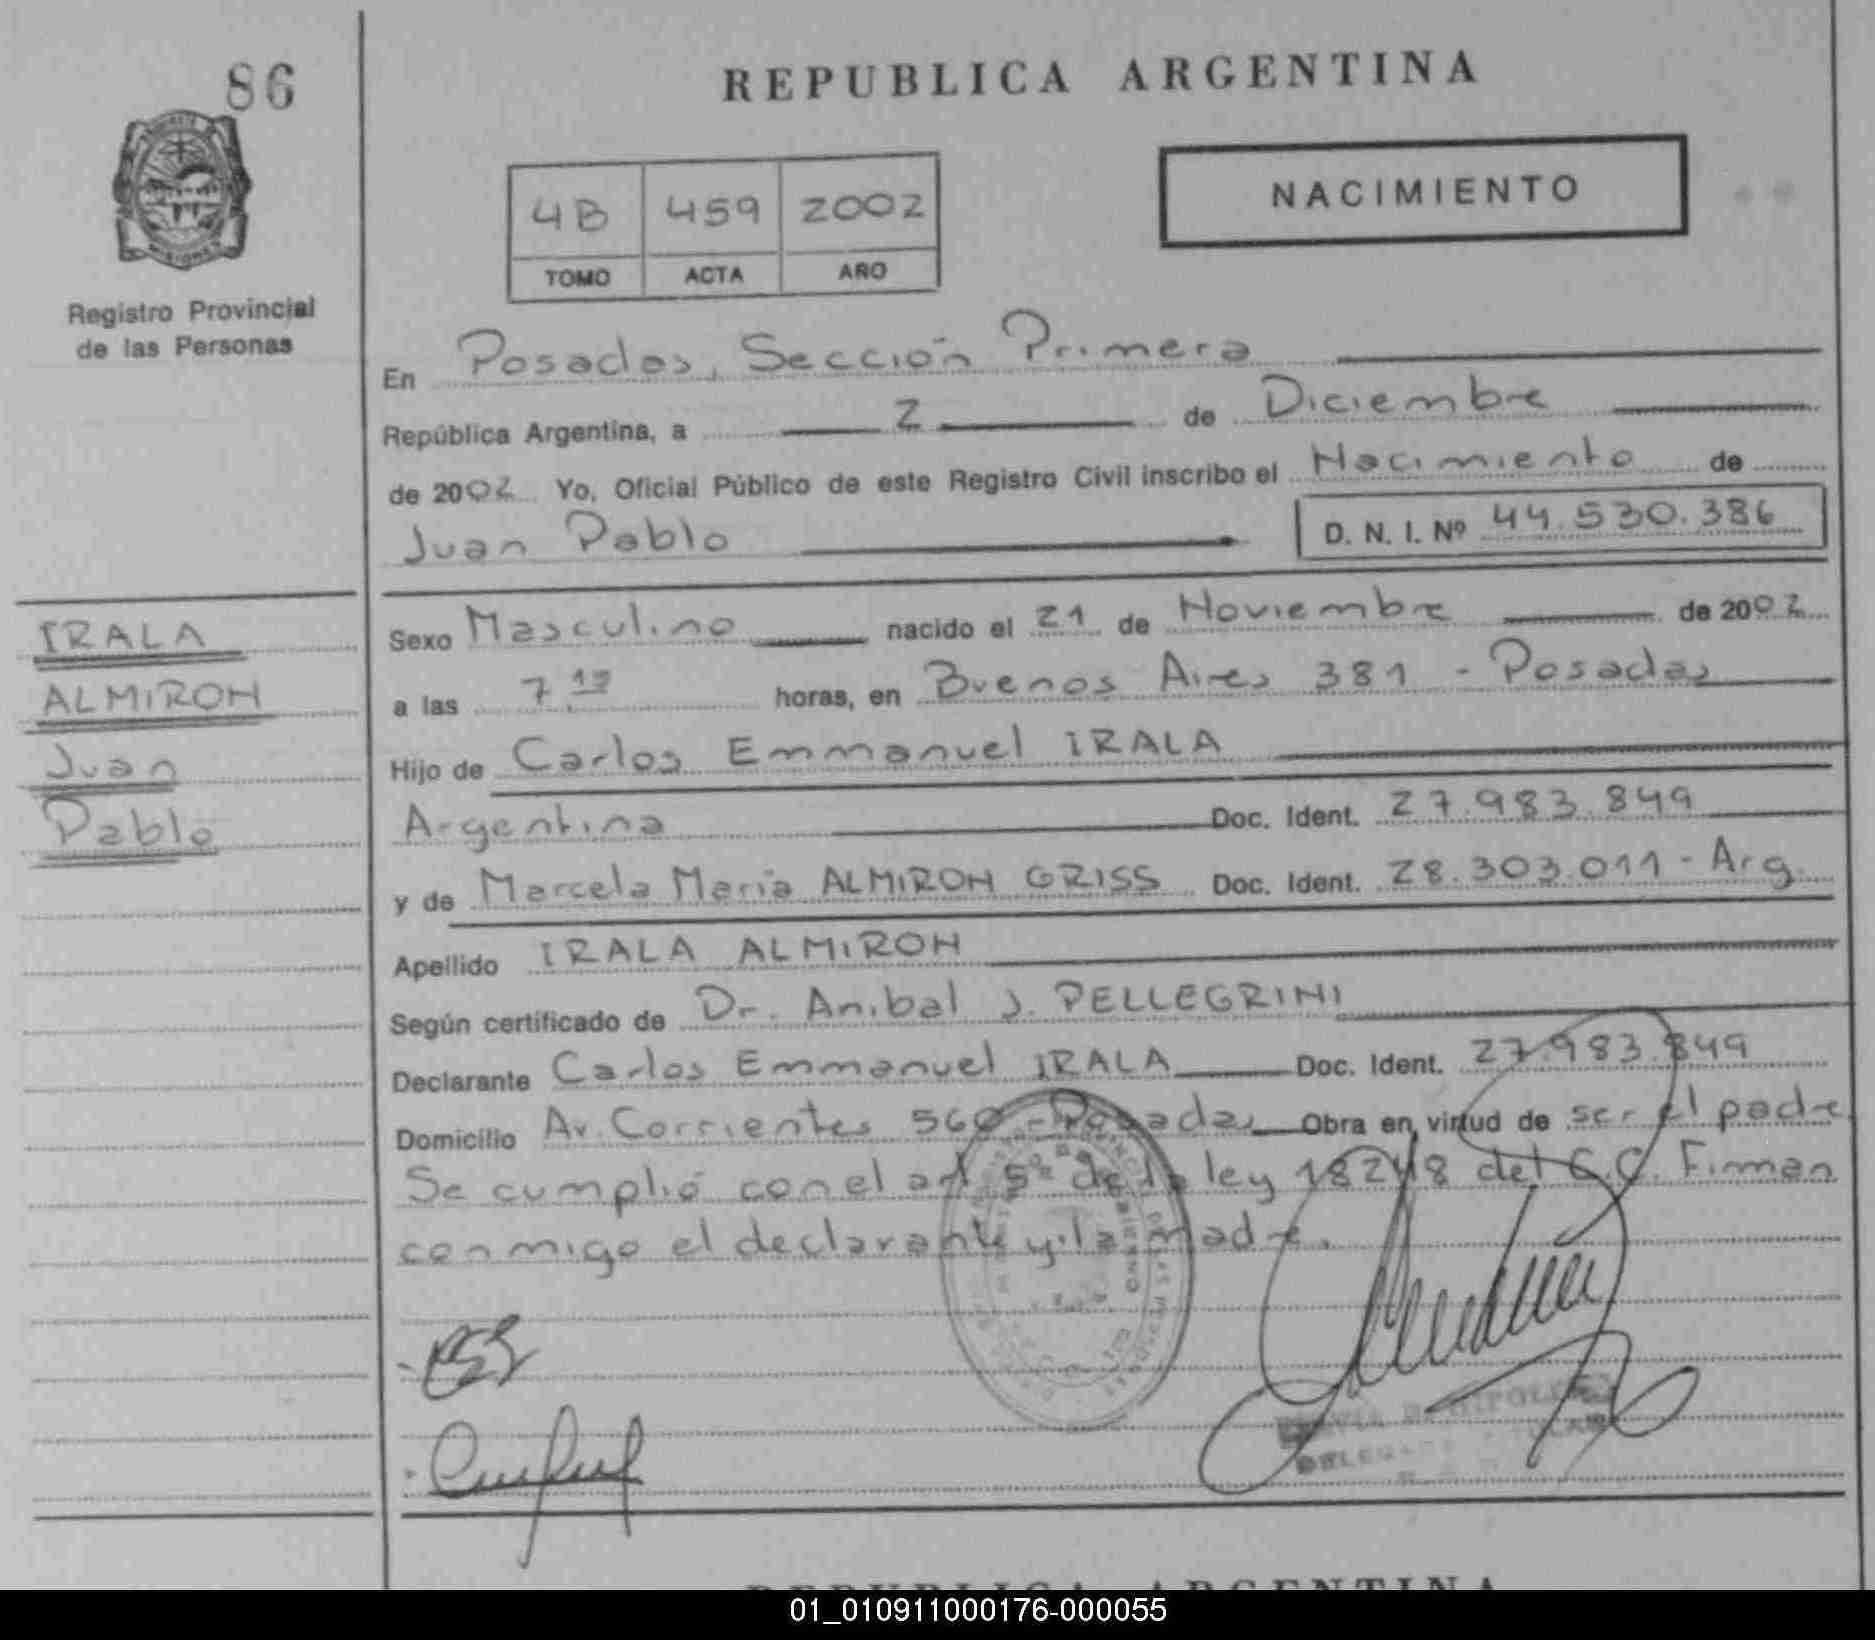 86
REPUBLICA ARGENTINA
NACIMIENTO
4B 459 2002
TOMO ACTA AÑO
Registro Provincial
de las Personas
En Posadas, Sección Primera
República Argentina, a 2 de Diciembre
de 2002 Yo, Oficial Público de este Registro Civil inscribo el Nacimiento de
Juan Pablo D. N. I. Nº 44.530.386
IRALA
ALMIRON
Juan
Pablo
Sexo Masculino nacido el 21 de Noviembre de 2002
a las 7 horas, en Buenos Aires 381 - Posadas
Hijo de Carlos Emmanuel IRALA
Argentina Doc. Ident. 27.983.849
y de Marcela María ALMIRON GRISS Doc. Ident. 28.303.011 - Arg.
Apellido IRALA ALMIRON
Según certificado de Dr. Anibal J. PELLEGRINI
Declarante Carlos Emmanuel IRALA Doc. Ident. 27.983.849
Domicilio Av. Corrientes 560 - Posadas Obra en virtud de ser el padre.
Se cumplió con el art 5º de la ley 18248 del C.C. Firman
conmigo el declarante y la madre.
REPUBLICA ARGENTINA
01_010911000176-000055